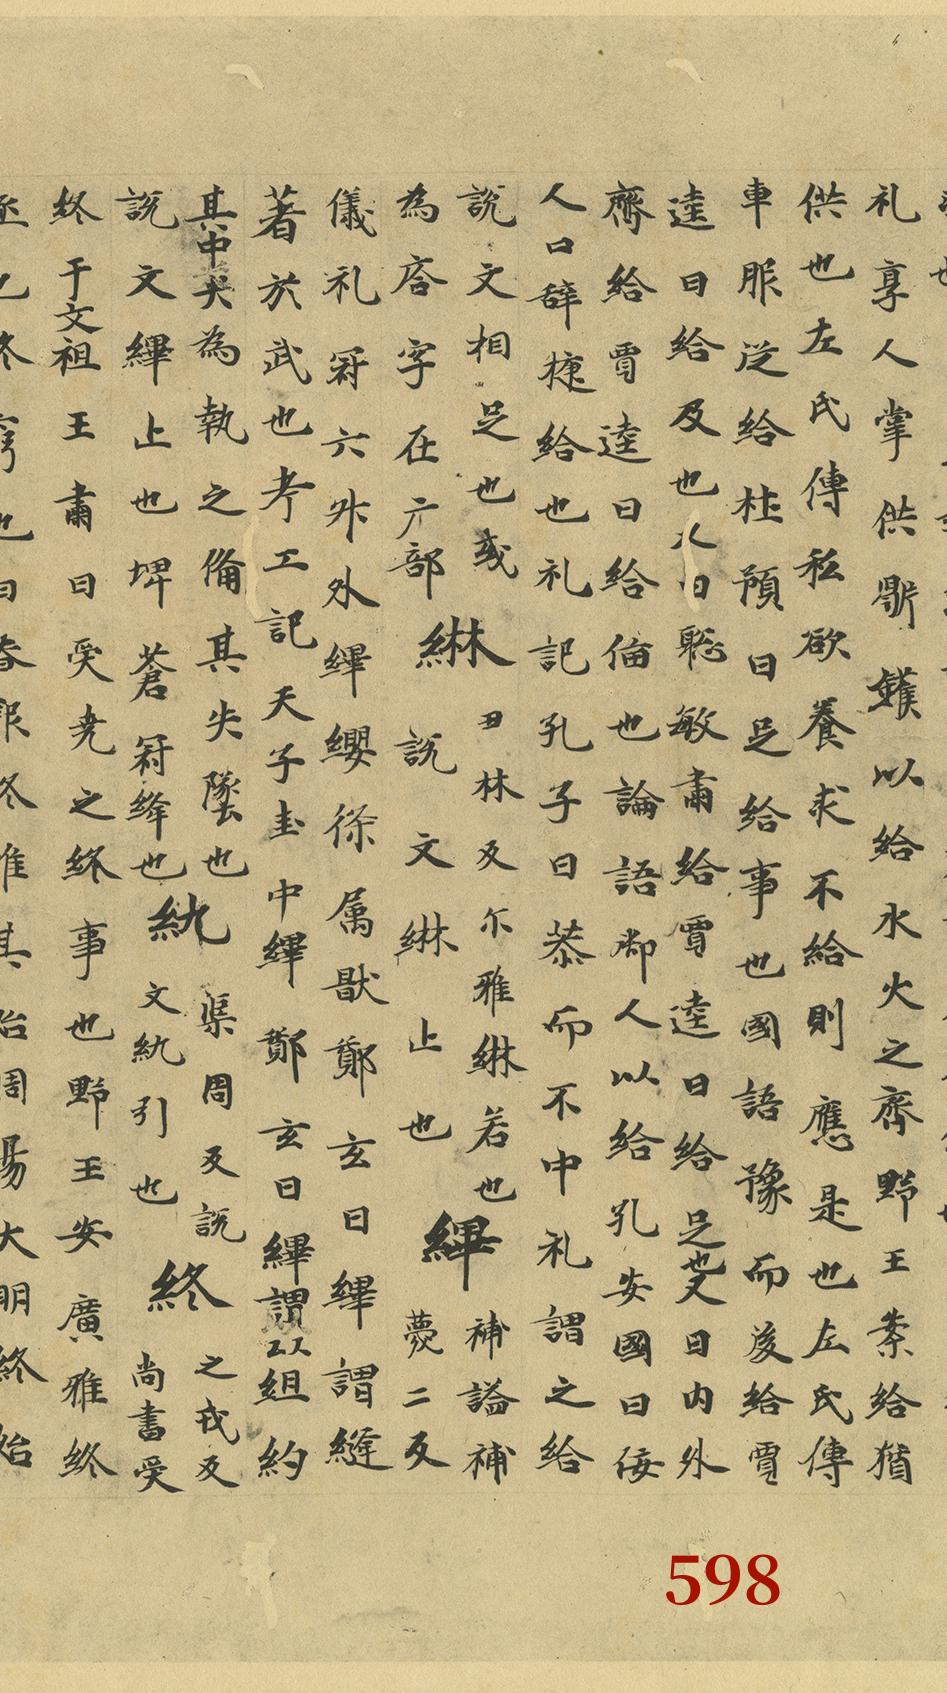 礼享人掌供鼎鑊以給水火之齊野王案給猶
供也左氏傳私欲養求不給則應是也左氏傳
車服従給杜預曰足給事也國語豫而後給賈
逵曰給及也又曰聡敏肅給賈逵曰給足也又曰内外
齊給賈逵曰給俻也論語御人以給孔安國曰佞
人口辞揵給也礼記孔子曰恭而不中礼謂之給
説文相足也或
為㕉字在广部
綝
丑林反尒雅綝若也
説文綝止也
縪
補謐補
薨二反
儀礼冠六升外縪纓徐属猒鄭玄曰縪謂縫
著於武也考工記天子圭中縪鄭玄曰縪謂以組約
其中央為執之俻其失墜也
説文縪止也埤蒼冠縫也
紈
渠周反説
文紈引也
終
之戎反
尚書受
終于文祖王肅曰受尭之終事也野王案廣雅終